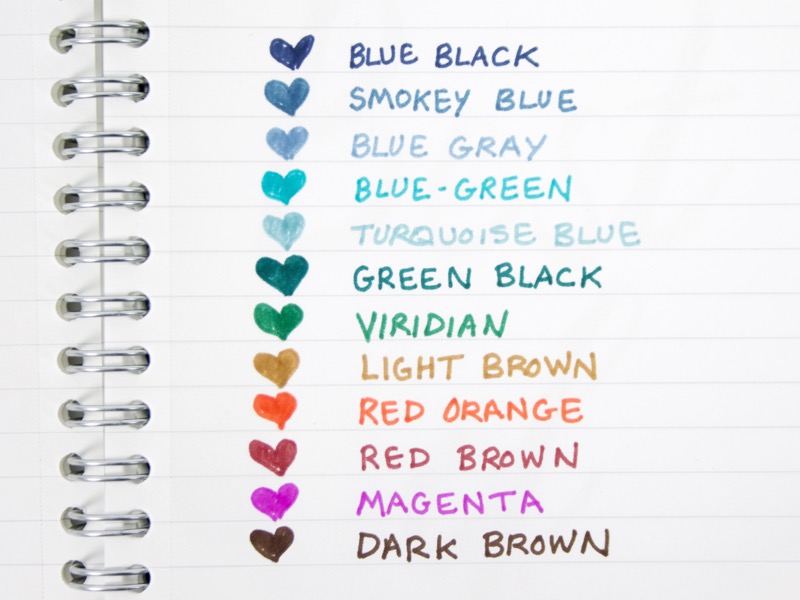 BLUE BLACK
SMOKEY BLUE
BLUE GRAY
BLUE-GREEN
TURQUOISE BLUE
GREEN BLACK
VIRIDIAN
LIGHT BROWN
RED ORANGE
RED BROWN
MAGENTA
DARK BROWN